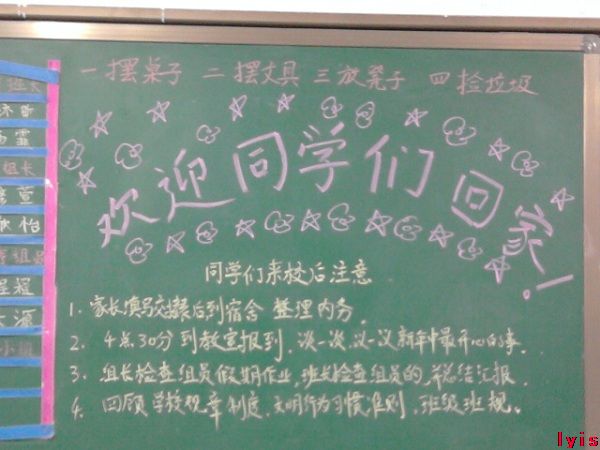 一摆桌子 二摆文具 三放凳子 四捡垃圾
欢迎同学们回家!
同学们来校后注意
1、家长填写交接表后到宿舍 整理内务
2、4点30分到教室报到,谈一谈,议一议新年中最开心的事.
3、组长检查组员假期作业,班长检查组员的,并总结汇报
4、回顾学校规章制度,文明行为习惯准则,班级班规。
班长
组长
lyis